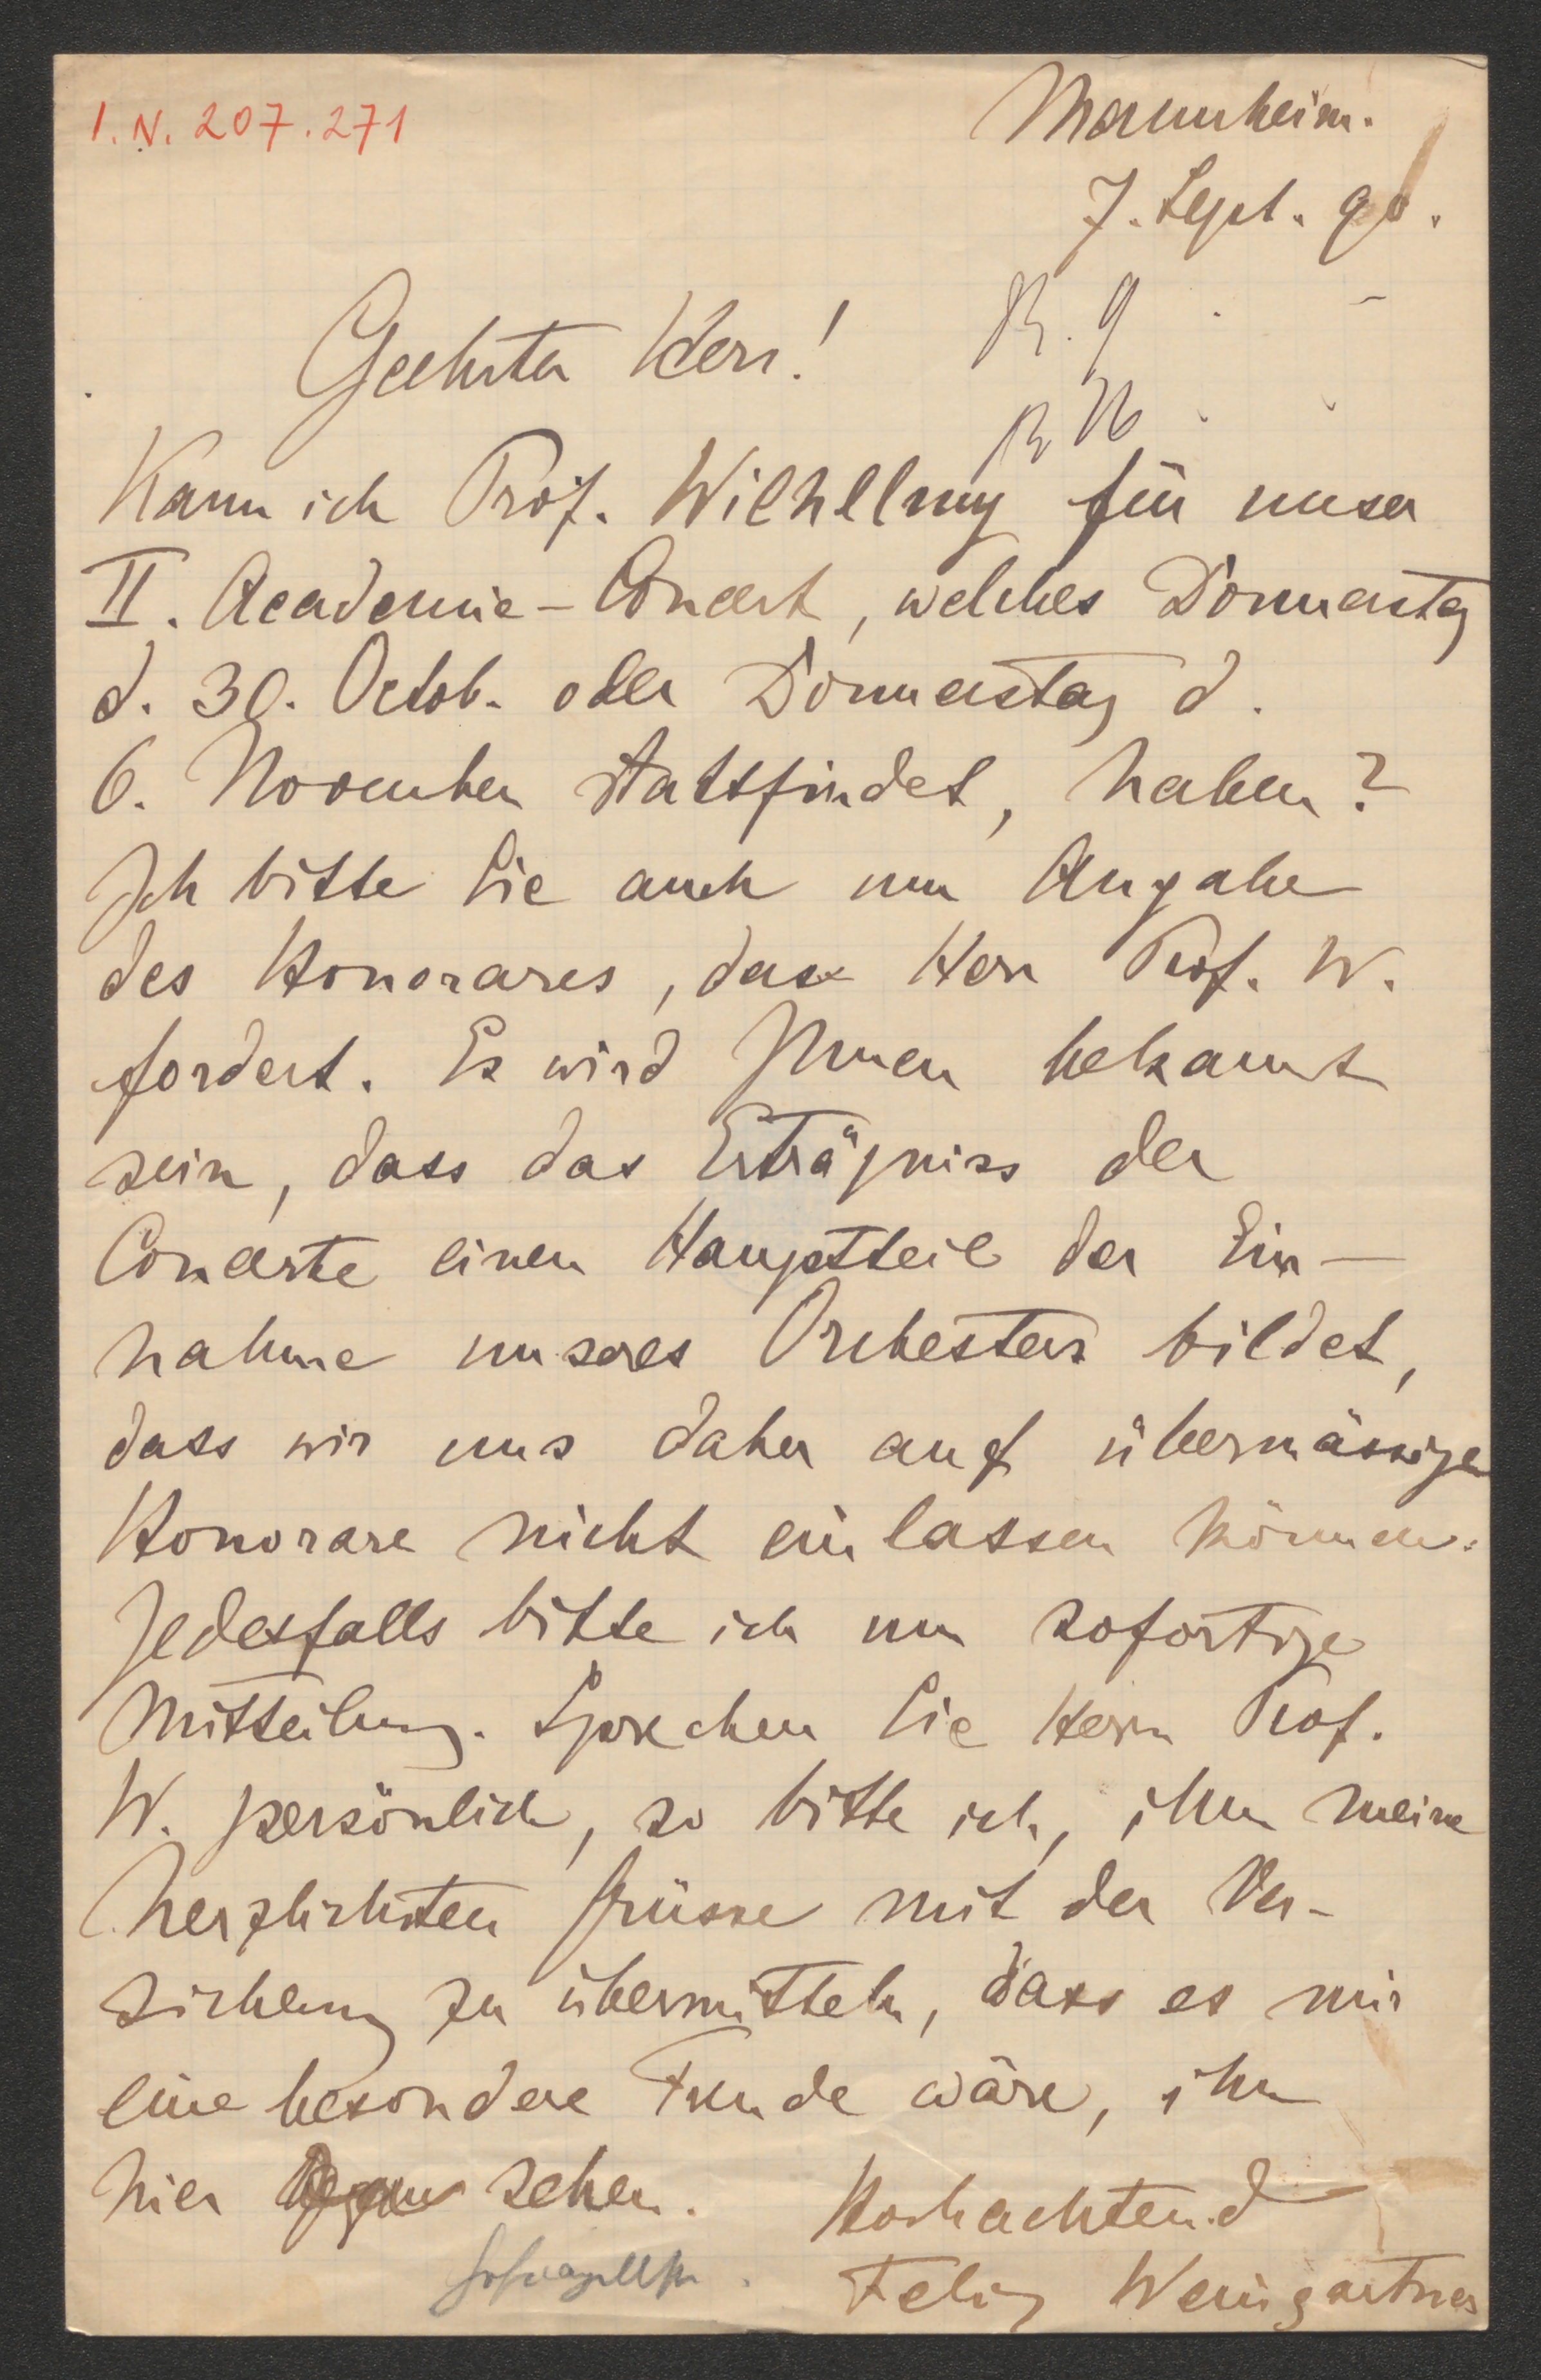 I.N. 207.271
Mannheim.
7. Sept. 90.
R. 9
Geehrter Herr!
Kann ich Prof. Wilhelmy für unser
II. Academie-Concert, welches Donnerstag
d. 30. Octob. oder Donnerstag d.
6. November stattfindet, haben?
Ich bitte Sie auch um Angabe
des Honorares, das Herr Prof. W.
fordert. Es wird Ihnen bekannt
sein, dass das Erträgniss der
Concerte einen Hauptteil der Ein-
nahme unseres Orchesters bildet,
dass wir uns daher auf übermässige
Honorare nicht einlassen können.
Jedesfalls bitte ich um sofortige
Mitteilung. Sprechen Sie Herrn Prof.
W. persönlich, so bitte ich, ihm meine
herzlichsten Grüsse mit der Ver-
sicherung zu übermitteln, dass es mir
eine besondere Freude wäre, ihn
hier sehen.
Hochachtend
Hofcapellm.
Felix Weingartner